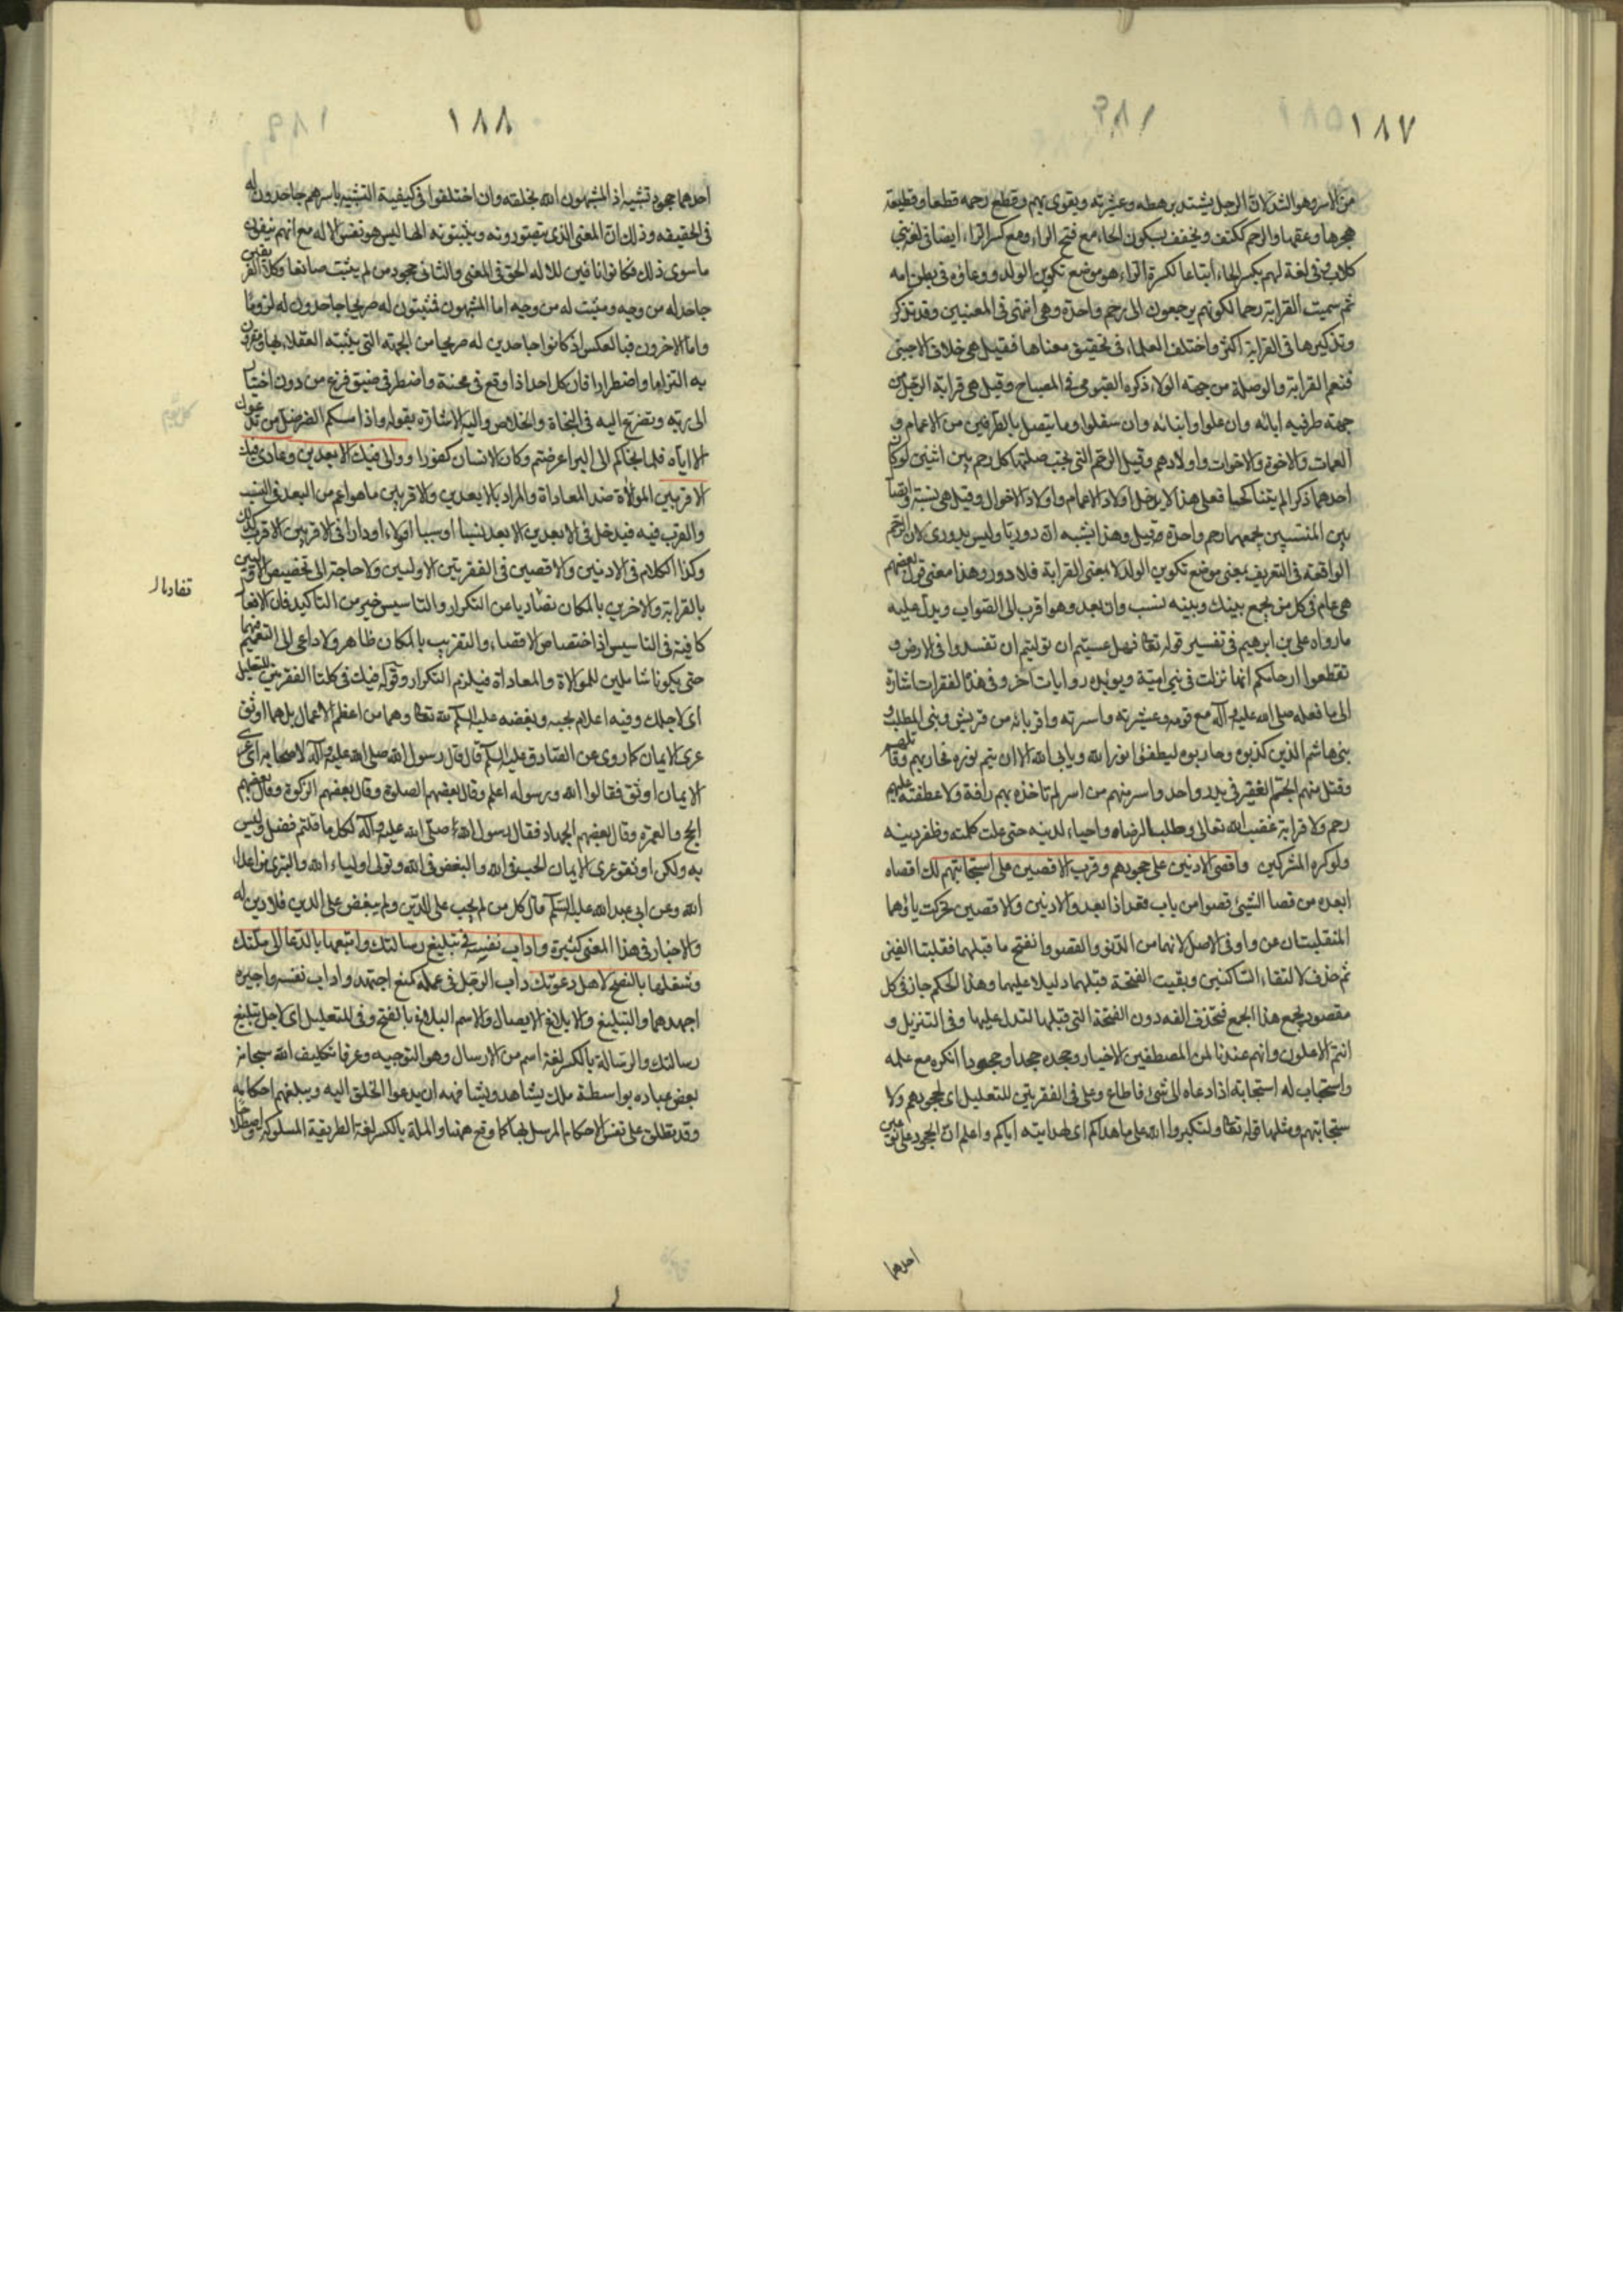 ١٨٧
من الاسر وهو الشد لان الرجل يشتد برهطه وعشيرته ويقوى بهم وقطع رحمه قطعا وقطيعة
هجرها وعقها والرحم ككتف ويخفف بسكون الحاء مع فتح الراء ومع كسر الراء ايضا في لغة بني
كلاب وفي لغة لهم بكسر الحاء اتباعا لكسرة الراء هو موضع تكوين الولد ووعاؤه في بطن امه
ثم سميت القرابة رحما لكونهم يرجعون الى رحم واحدة وهي انثى في المعنيين وقد تذكر
وتذكيرها في القرابة اكثر واختلف العلماء في تحقيق معناها فقيل هي خلاف الاجنبي
فتعم القرابة والوصلة من جهة الولاء ذكره الفيومي في المصباح وقيل هي قرابة الرجل من
جهة طرفيه ابائه وان علوا وابنائه وان سفلوا وما يتصل بالطرفين من الاعمام و
العمات والاخوة والاخوات واولادهم وقيل الرحم التي يجب صلتها كل رحم بين اثنين لو كان
احدهما ذكرا لم يتناكحا فعلى هذا لا يدخل اولاد الاعمام واولاد الاخوال وقيل هي نسبة
بين المنتسبين يجمعهما رحم واحدة وقيل وهذا يشبه ان دوريا وليس بدوري لان الرحم
الواقعة في التعريف بمعنى موضع تكوين الولد لا بمعنى القرابة فلا دور وهذا معنى قول بعضهم
هي عام في كل من يجمع بينك وبينه نسب وان بعد وهو اقرب الى الصواب ويدل عليه
ما رواه علي بن ابرهيم في تفسير قوله تعالى فهل عسيتم ان توليتم ان تفسدوا في الارض و
تقطعوا ارحامكم انها نزلت في بني امية ويؤيده روايات اخر وفي هذه الفقرات اشارة
الى ما فعله صلى الله عليه وآله مع قومه وعشيرته واسرته واقربائه من قريش وبني المطلب و
بني هاشم الذين كذبوه وحاربوه ليطفئوا نور الله ويابى الله الا ان يتم نوره فحاربهم وقاتلهم
وقتل منهم الجم الغفير في بدر واحد واسر منهم من اسر لم تاخذه بهم رافة ولا عطفته عليهم
رحم ولا قرابة غضبا لله تعالى وطلبا لرضاه واحياء لدينه حتى علت كلمته وظفر دينه
ولو كره المشركين واقصى الادنين على جحودهم وقرب الاقصين على استجابتهم لك اقصاه
ابعده من قصا الشيئ قصوا من باب قعد اذا بعد والادنين والاقصين تحركت ياؤهما
المنقلبتان عن واو في الاصل لانهما من الدنو والقصو وانفتح ما قبلهما فقلبتا الفين
ثم حذف لالتقاء الساكنين وبقيت الفتحة قبلهما دليلا عليهما وهذا الحكم جاز في كل
مقصور يجمع هذا الجمع فتحذف الفه دون الفتحة التي قبلها لتدل عليها وفي التنزيل و
انتم الاعلون وانهم عندنا لمن المصطفين الاخيار وجحده جحدا وجحودا انكره مع علمه
واستجاب له استجابة اذا دعاه الى شيء فاطاع وعلى في الفقرتين للتعليل اى لجحودهم ولا
ستجابتهم ومثلها قوله تعالى ولتكبروا الله على ما هداكم اى لهدايته اياكم واعلم ان الجحود على نوعين
احدهما
١٨٨
احدهما جحود تشبيه اذ المشبهون الله بخلقه وان اختلفوا في كيفية التشبيه باسرهم جاحدون له
في الحقيقه وذلك ان المعنى الذي يتصورونه ويثبتونه الها ليس هو نفس الاله مع انهم ينفون
ما سوى ذلك فكانوا نافين للاله الحق في المعنى والثاني جحود من لم يثبت صانعا وكلا الفريقين
جاحد له من وجه ومثبت له من وجه اما المشبهون فمثبتون له صريحا جاحدون له لزوما
واما الاخرون فبالعكس اذ كانوا جاحدين له صريحا من الجهة التي يثبته العقلاء لها ومقرون
به التزاما واضطرارا فان كل احد اذا وقع في محنة واضطر في ضيق فزع من دون اختيار
الى ربه وتضرع اليه في النجاة والخلاص واليه الاشارة بقوله واذا مسكم الضر ضل من تدعون
الا اياه فلما نجاكم الى البر اعرضتم وكان الانسان كفورا ووالى فيك الابعدين وعادى فيك
الاقربين الموالاة ضد المعاداة والمراد بالابعدين والاقربين ما هو اعم من البعد في النسب
والقرب فيه فيدخل في الابعدين الابعد نسبا او سببا او ولاء او دارا في الاقربين الاقرب كذلك
وكذا الكلام في الادنين والاقصين في الفقرتين الاوليين ولا حاجة الى تخصيص الاوليين
بالقرابة والاخرين بالمكان تفاديا عن التكرار والتاسيس خير من التاكيد فان الافعال
كافية في التاسيس اذ اختصاص الاقصاء والتقريب بالمكان ظاهر ولا داعي الى التعميم
حتى يكونا شاملين للموالاة والمعاداة فيلزم التكرار وقوله فيك في كلتا الفقرتين للتعليل
اى لاجلك وفيه اعلام بحبه وبغضه عليه السلام لله تعالى وهما من اعظم الاعمال بل هما اوثق
عرى الايمان كما روى عن الصادق عليه السلام قال قال رسول الله صلى الله عليه وآله لاصحابه اى عرى
الايمان اوثق فقالوا الله ورسوله اعلم وقال بعضهم الصلوة وقال بعضهم الزكوة وقال بعضهم
الحج والعمرة وقال بعضهم الجهاد فقال رسول الله صلى الله عليه وآله لكل ما قلتم فضل وليس
به ولكن اوثق عرى الايمان الحب في الله والبغض في الله وتولى اولياء الله والتبرى من اعداء
الله وعن ابي عبد الله عليه السلام قال كل من لم يحب على الدين ولم يبغض على الدين فلا دين له
والاخبار في هذا المعنى كثيرة واداب نفسه في تبليغ رسالتك واتعبها بالدعا الى ملتك
وشغلها بالنصح لاهل دعوتك داب الرجل في عمله كمنع اجتهد واداب نفسه واجيره
اجهدهما والتبليغ والابلاغ الايصال والاسم البلاغ بالفتح وفي للتعليل اى لاجل تبليغ
رسالتك والرسالة بالكسر لغة اسم من الارسال وهو التوجيه وعرفا تكليف الله سبحانه
بعض عباده بواسطة ملك يشاهده ويشافهه ان يدعوا الخلق اليه ويبلغهم احكامه
وقد تطلق على نفس الاحكام المرسل بها كما وقع ههنا والملة بالكسر لغة الطريقة المسلوكة واصطلاحا